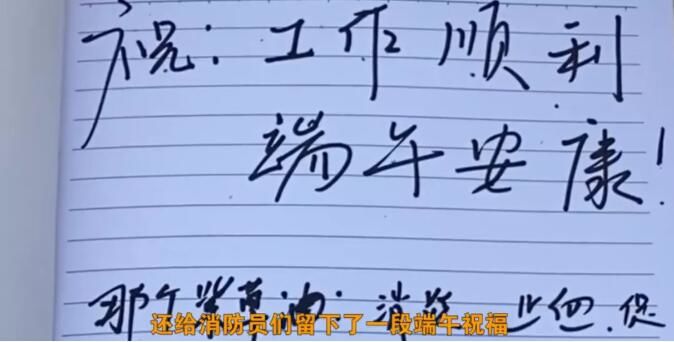 祝：工作顺利
端午安康！
那个紫草油：消
还给消防员们留下了一段端午祝福